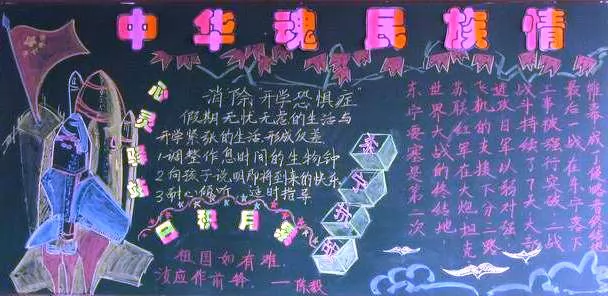 中华魂民族情
心灵驿站
消除"开学恐惧症"
假期无忧无虑的生活与
开学紧张的生活,形成反差
1调整作息时间的生物钟
2向孩子说明即将到来的快乐
3耐心倾听、适时指导
日积月累
祖国如有难,
汝应作前锋.
——陈毅
东宁要塞是第一次
世界大战的终结地
苏联红军 大炮坦克
飞机 支援下分三路
进攻日
战斗持续了 天大部
工事被强行突破
最后一战在东宁落下
帷幕成了侵略者